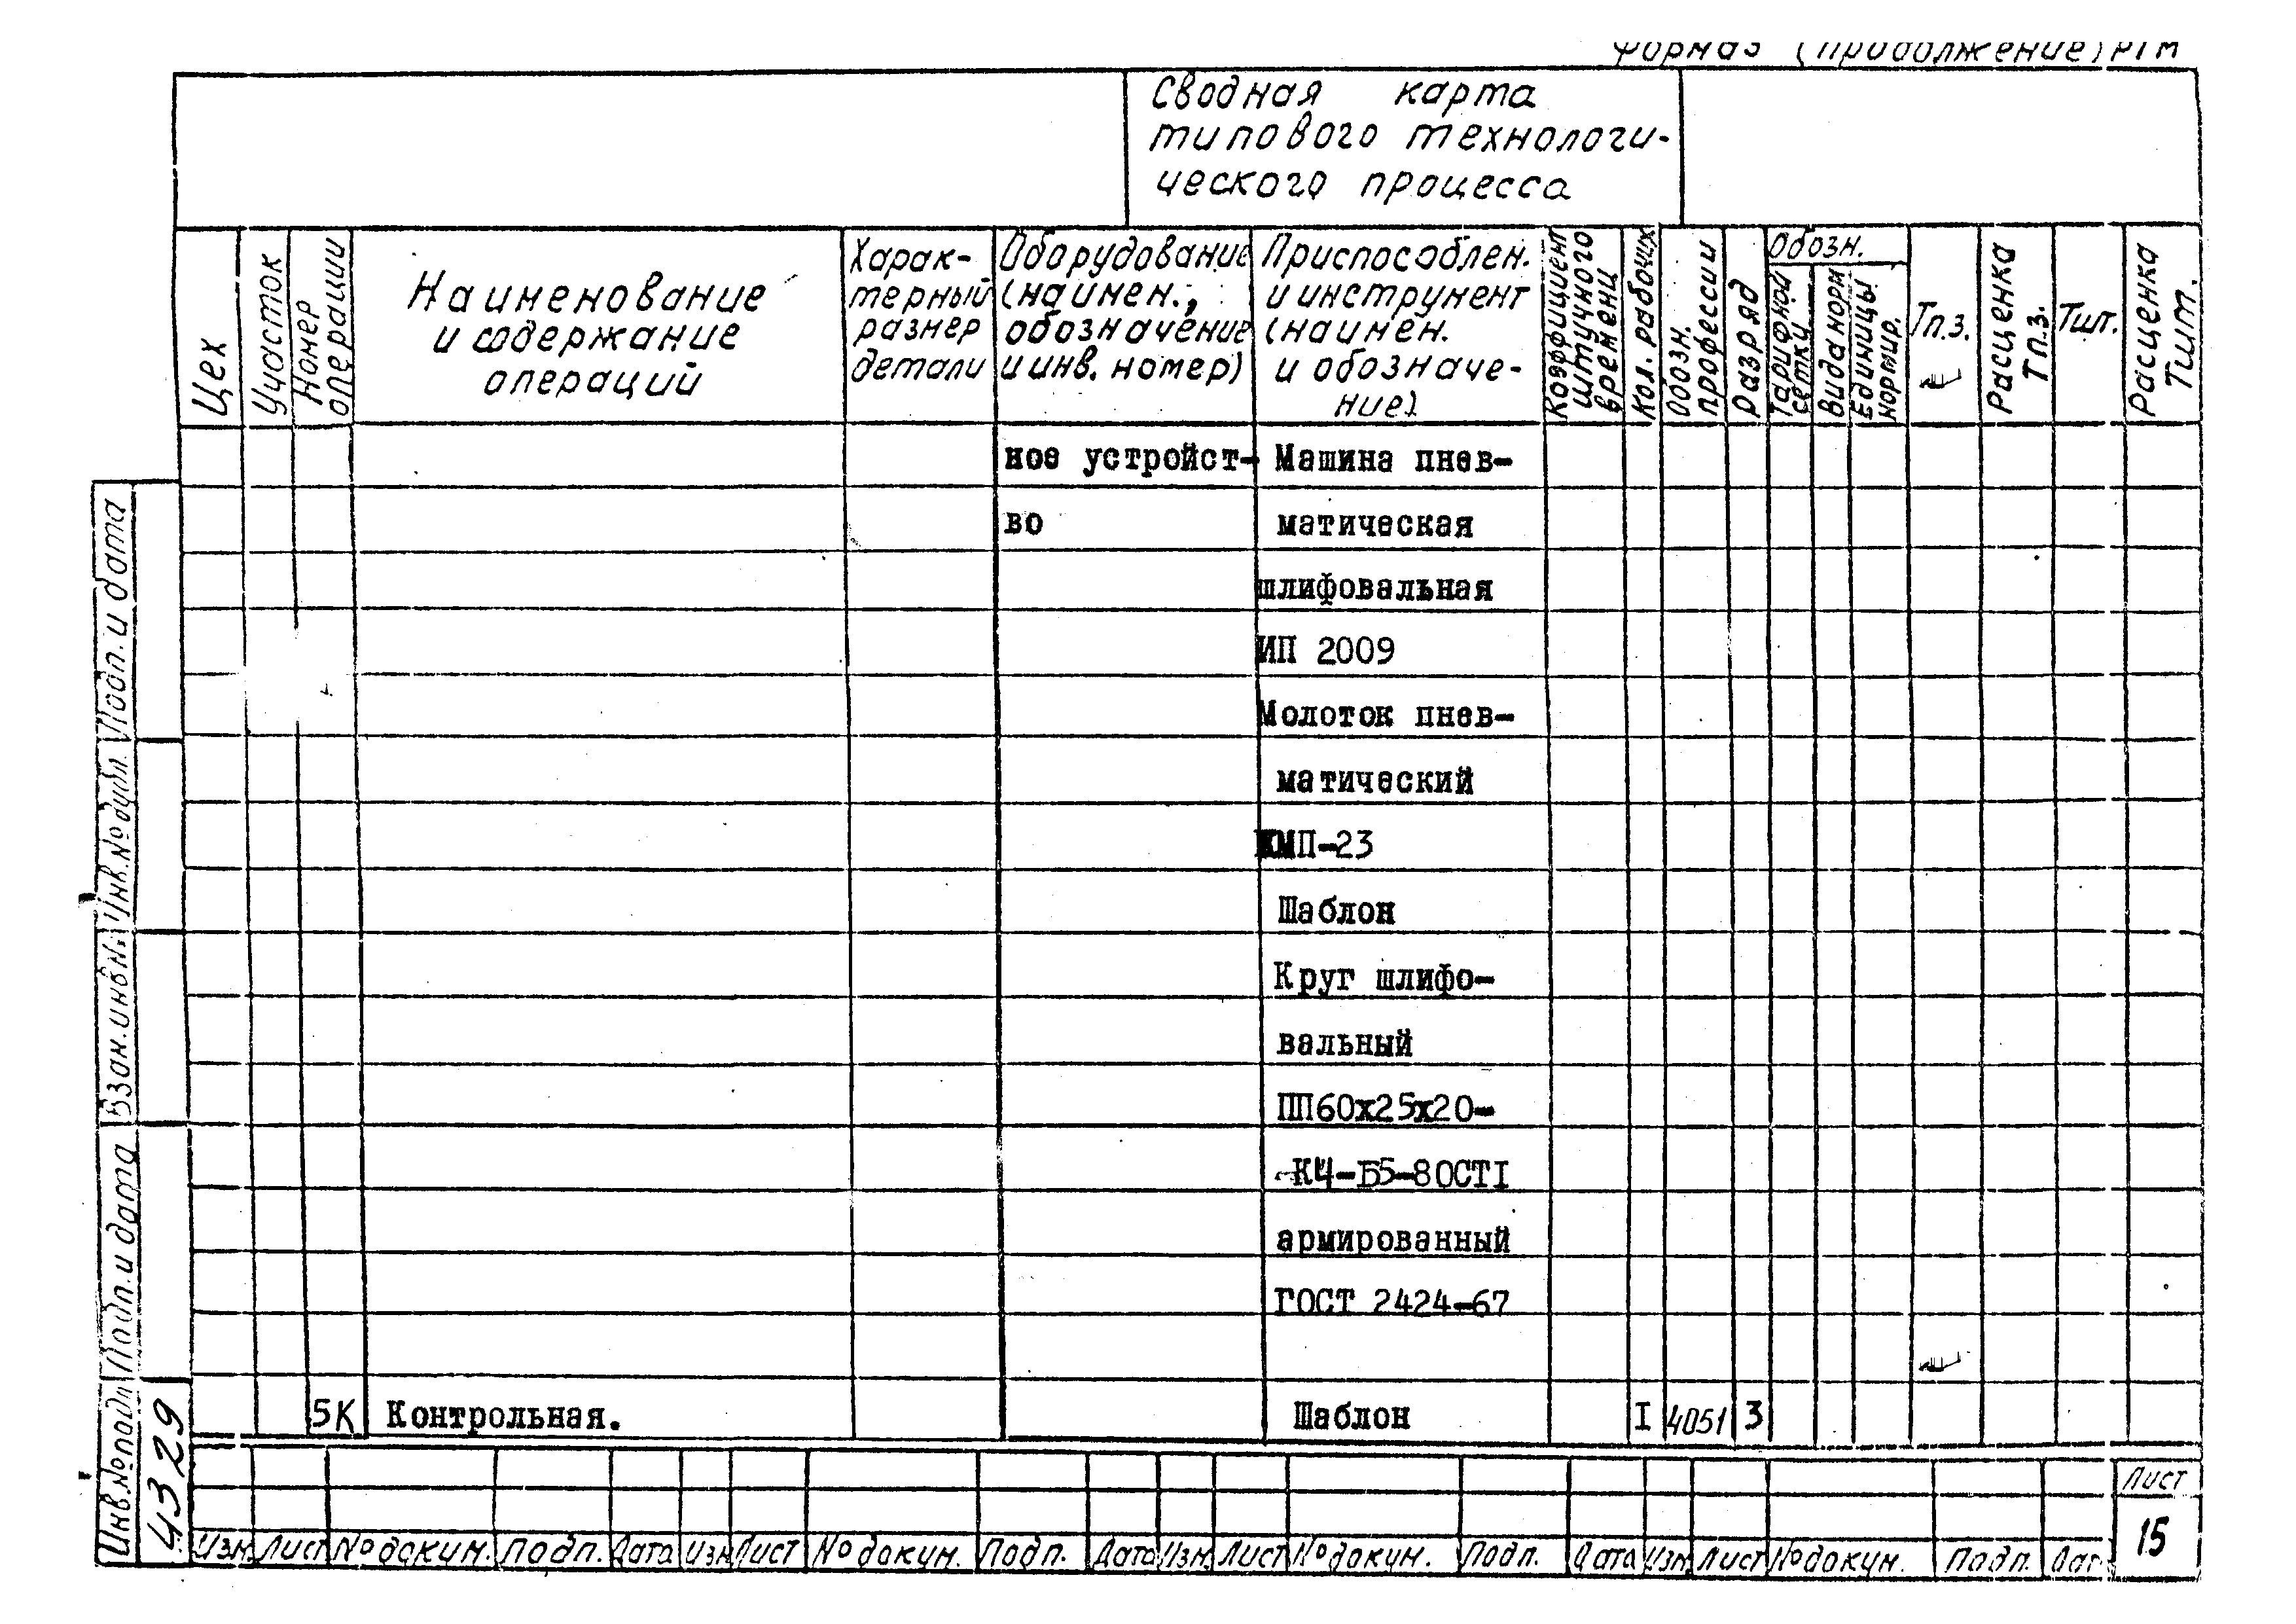 форма 3 (продолжение) РТМ
Сводная карта
типового технологи-
ческого процесса
Цех
Участок
Номер
операции
Наименование
и содержание
операций
Харак-
терный
размер
детали
Оборудование
(наимен.,
обозначение
и инв. номер)
Приспособлен.
и инструмент
(наимен.
и обозначе-
ние)
Коэффициент
штучного
времени
Кол. рабочих
Обозн.
профессии
Разряд
Обозн.
Тарифной
сетки
Вида норм
Единицы
нормир.
Тп.з.
Расценка
Тп.з.
Тшт.
Расценка
Тшт.
ное устройст- Машина пнев-
во матическая
шлифовальная
ИП 2009
Молоток пнев-
матический
КМП-23
Шаблон
Круг шлифо-
вальный
ПП60х25х20-
-К4-Б5-80СТI
армированный
ГОСТ 2424-67
5К Контрольная. Шаблон I 4051 3
Подп. и дата
Инв.№ дубл.
Взам. инв.№
Подп. и дата
Инв.№ подл
4329
Лист
15
Изм. Лист № докум. Подп. Дата Изм Лист № докум. Подп. Дата Изм. Лист № докум. Подп. Дата Изм. Лист № докум. Подп. Дат